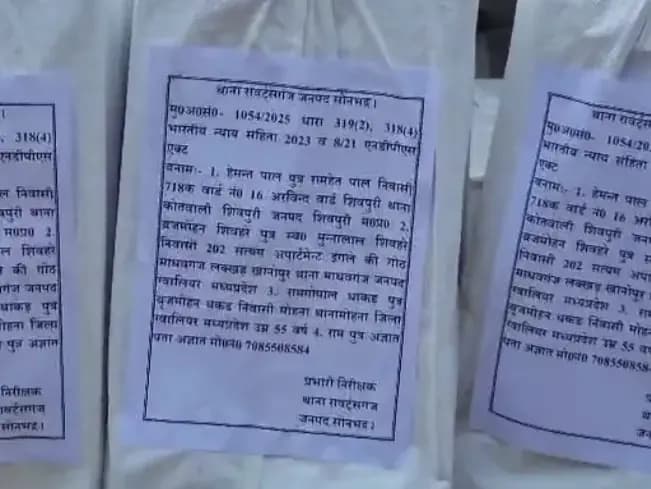 थाना रावर्ट्सगंज जनपद सोनभद्र।
मु0अ0सं0- 1054/2025 धारा 319(2), 318(4)
भारतीय न्याय संहिता 2023 व 8/21 एनडीपीएस
एक्ट
वनामः- 1. हेमन्त पाल पुत्र रामहेत पाल निवासी
718क वार्ड नं0 16 अरविन्द वार्ड शिवपुरी थाना
कोतवाली शिवपुरी जनपद शिवपुरी म0प्र0 2.
ब्रजमोहन शिवहरे पुत्र स्व0 मुन्नालाल शिवहरे
निवासी 202 सत्यम अपार्टमेन्ट इंगले की गोठ
माधवगंज लश्कर खानीपुर थाना माधवगंज जनपद
ग्वालियर मध्यप्रदेश 3. रामगोपाल धाकड़ पुत्र
बृजमोहन धकड निवासी मोहना थानामोहना जिला
ग्वालियर मध्यप्रदेश उम्र 55 वर्ष 4. राम पुत्र अज्ञात
पता अज्ञात मो0नं0 7085508584
प्रभारी निरीक्षक
थाना रावर्ट्सगंज
जनपद सोनभद्र।
318(4)
एनडीपीएस
निवासी
थाना
म0प्र0 2.
शिवहरे
की गोठ
जनपद
धाकड़ पुत्र
जिला
पुत्र अज्ञात
निरीक्षक
रावर्ट्सगंज
सोनभद्र।
थाना
मु0अ0सं0- 1054/20
भारतीय न्याय संहिता
एक्ट
वनामः- 1. हेमन्त पाल
718क वार्ड नं0 16
कोतवाली शिवपुरी
ब्रजमोहन शिवहरे पुत्र
निवासी 202 सत्यम
ग्वालियर मध्यप्रदेश 3.
बृजमोहन धकड निवासी
ग्वालियर मध्यप्रदेश उम्र 55
पता अज्ञात मो0नं0 708550858